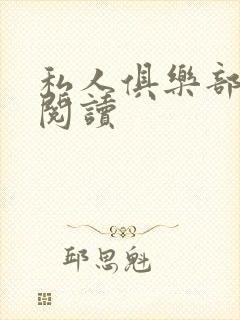 私人俱樂部
閱讀
邱思魁